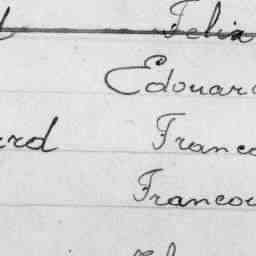 Felix
Edouard
rd Franco
Francou